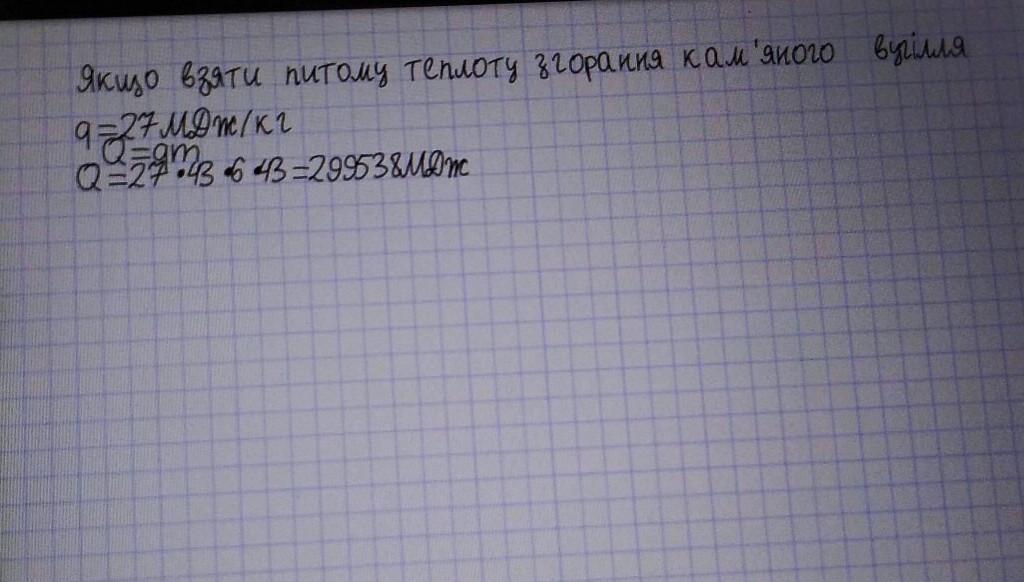 Якщо взяти питому теплоту згорання кам'яного вугілля
q=27МДж/кг
Q=qm
Q=27•43•6•43=299538МДж